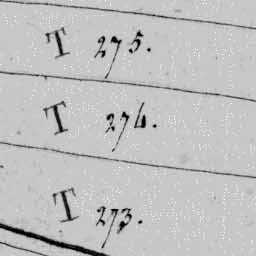 T 275.
T 274.
T 273.